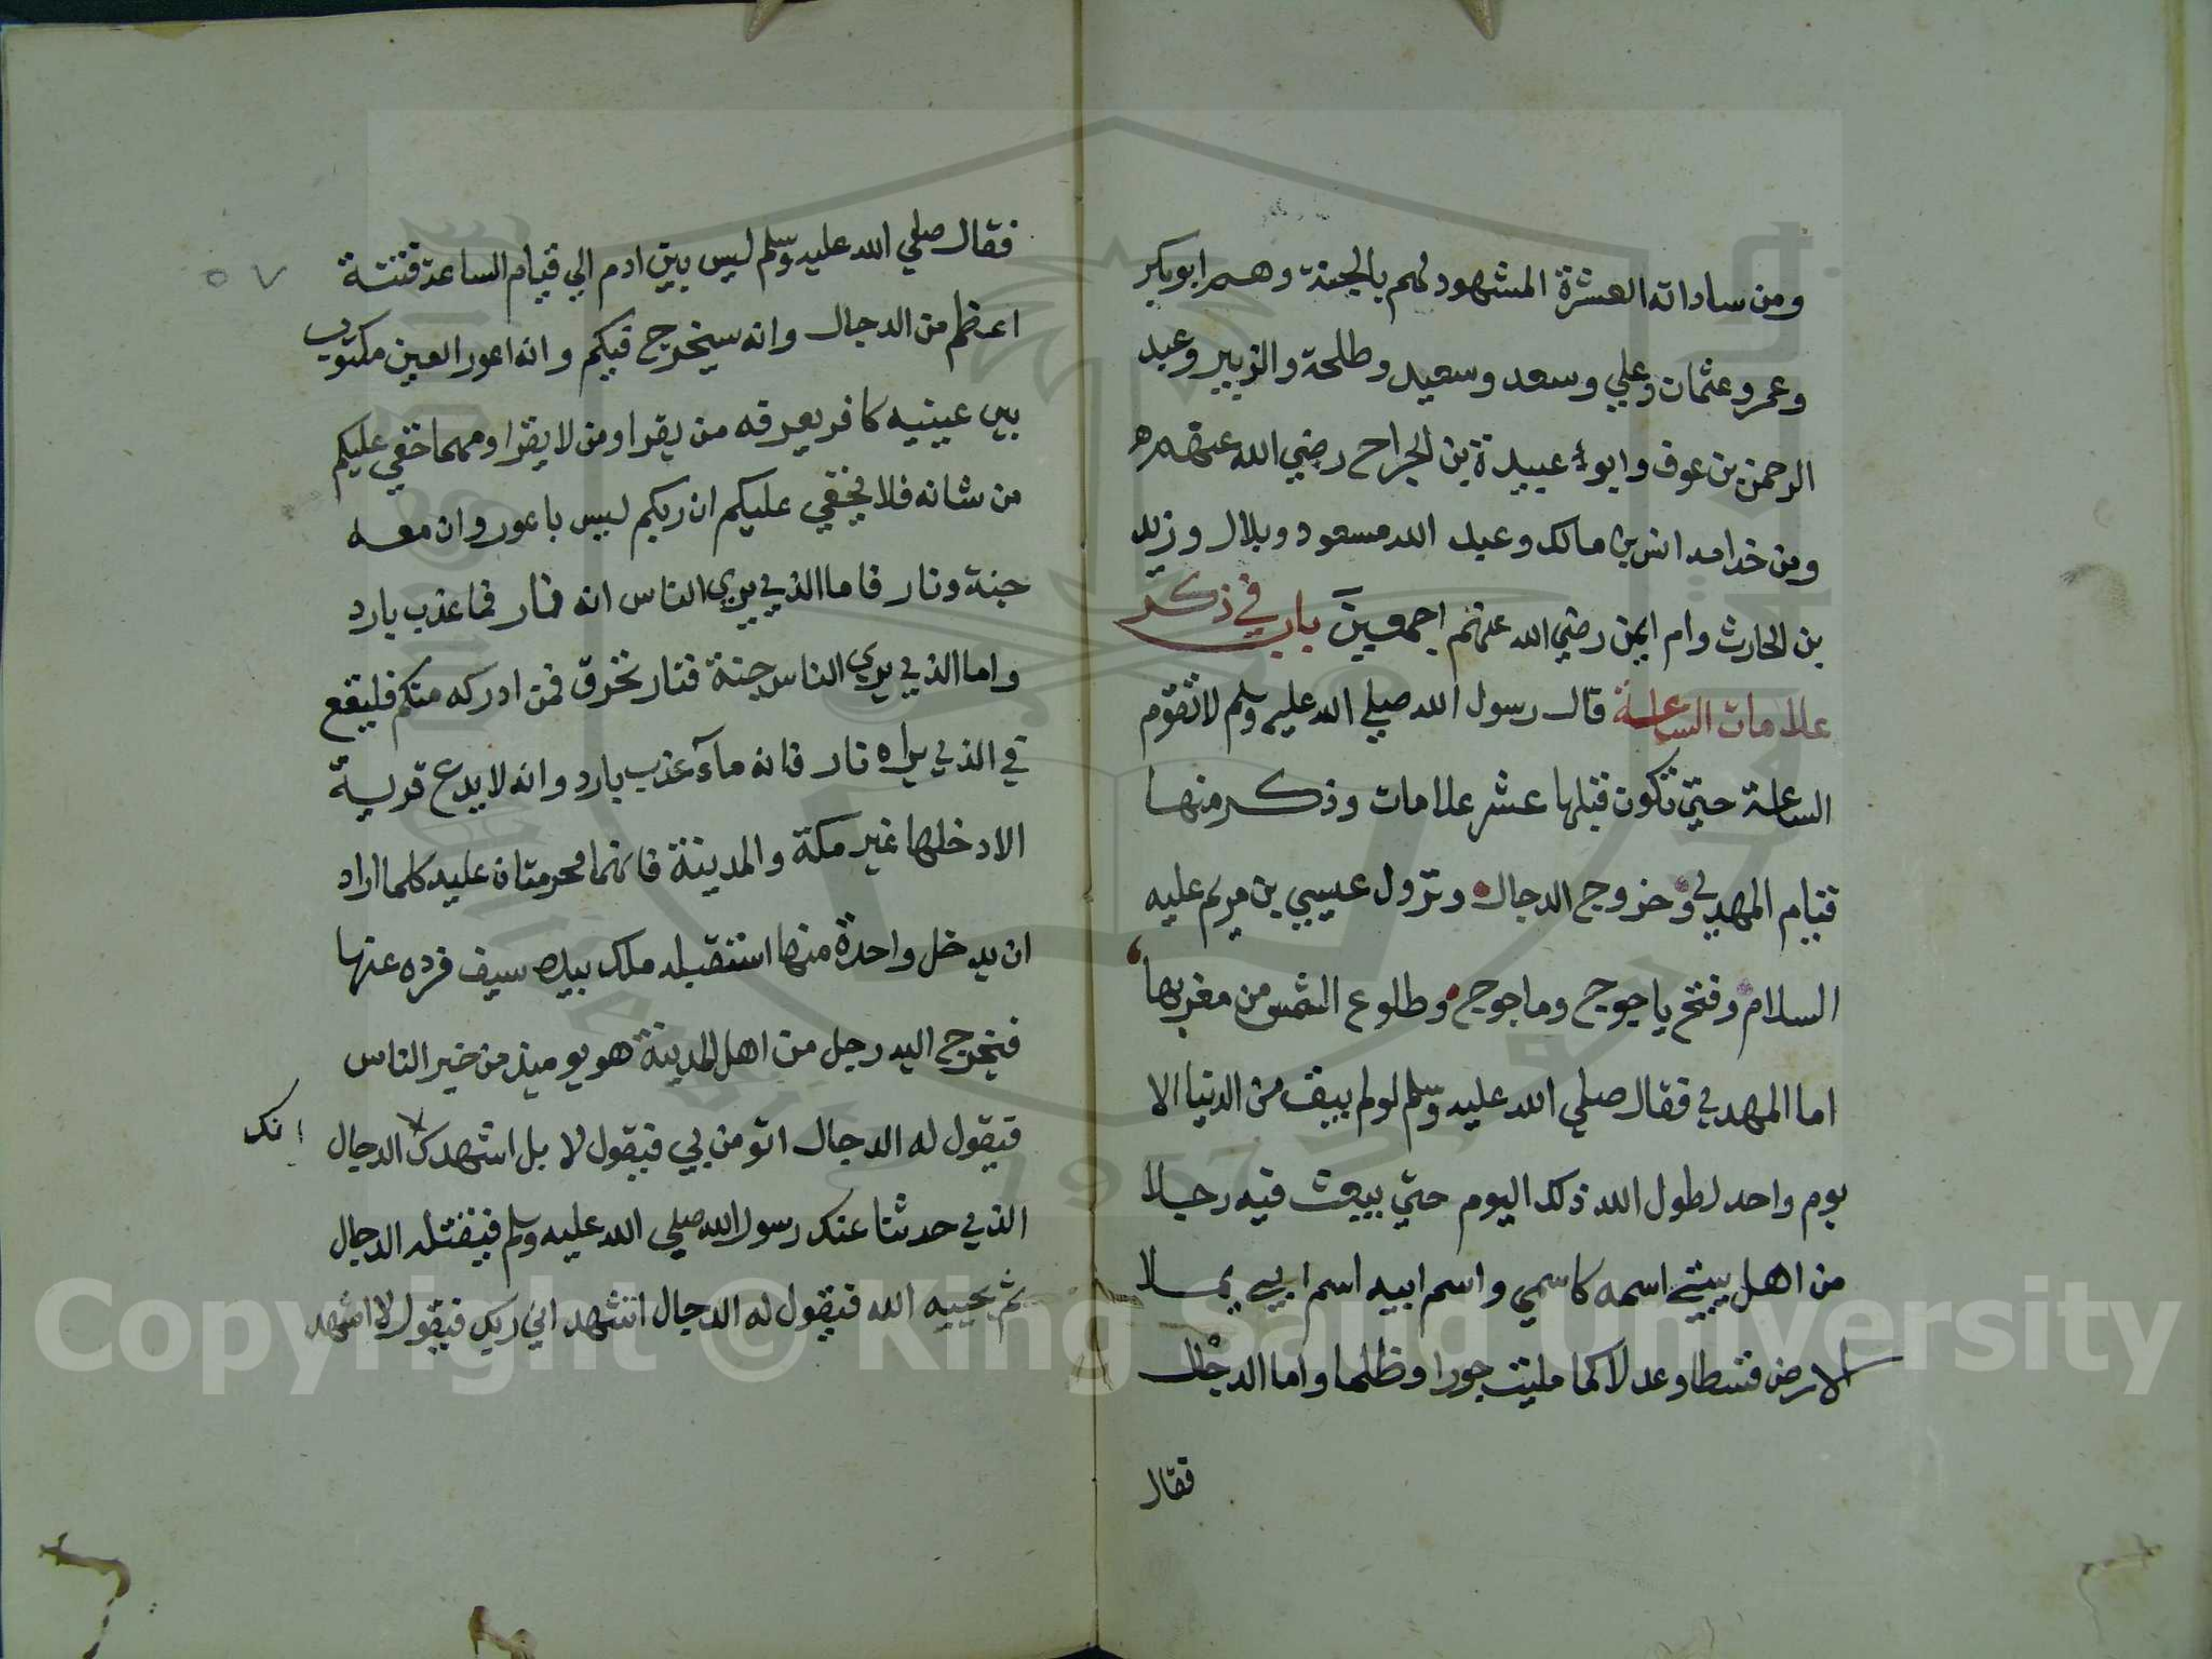 ومن ساداته العشرة المشهود لهم بالجنة وهم ابو بكر
وعمر وعثمان وعلي وسعد وسعيد وطلحة والزبير وعبد
الرحمن بن عوف وابو عبيدة بن الجراح رضي الله عنهم
ومن خدامه انس بن مالك وعبد الله مسعود وبلال وزيد
بن الحارث وام ايمن رضي الله عنهم اجمعين باب في ذكر
علامات الساعة قال رسول الله صلي الله عليه وسلم لا تقوم
الساعة حتي تكون قبلها عشر علامات وذكر منها
قيام المهدي وخروج الدجال ونزول عيسي بن مريم عليه
السلام وفتح ياجوج وماجوج وطلوع الشمس من مغربها
اما المهدي فقال صلي الله عليه وسلم لو لم يبق من الدنيا الا
يوم واحد لطول الله ذلك اليوم حتي يبعث فيه رجلا
من اهل بيتي اسمه كاسمي واسم ابيه اسم ابي يملا
الارض قسطا وعدلا كما مليت جورا وظلما واما الدجال
فقال
٥٧
فقال صلي الله عليه وسلم ليس بين ادم الي قيام الساعة فتنة
اعظم من الدجال وانه سيخرج فيكم وانه اعور العين مكتوب
بين عينيه كافر يعرفه من يقرا ومن لا يقرا ومهما خفي عليكم
من شانه فلا يخفي عليكم ان ربكم ليس باعور وان معه
جنة ونار فاما الذي يري الناس انه نار فما عذب بارد
واما الذي يري الناس جنة فنار تحرق فمن ادركه منكم فليقع
في الذي يراه نار فانه مآء عذب بارد وانه لا يدع قرية
الا دخلها غير مكة والمدينة فانهما محرمتان عليه كلما اراد
ان يدخل واحدة منها استقبله ملك بيده سيف فرده عنها
فيخرج اليه رجل من اهل المدينة هو يوميذ من خير الناس
فيقول له الدجال اتومن بي فيقول لا بل اشهدك الدجال
انك
الذي حدثنا عنك رسول الله صلي الله عليه وسلم فيقتله الدجال
ثم يحييه الله فيقول له الدجال اتشهد اني ربك فيقول لا اشهد
Copyright © King Saud University
1957